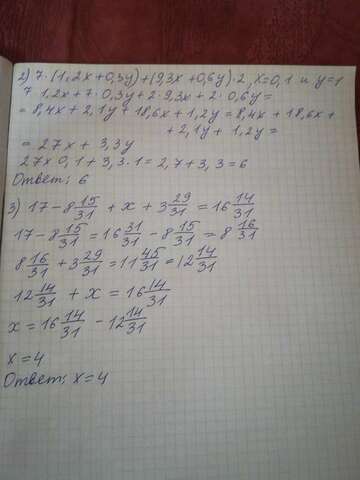 2) 7·(1,2x+0,3y)+(9,3x+0,6y)·2, x=0,1 и y=1
7 1,2x+7·0,3y+2·9,3x+2·0,6y=
=8,4x+2,1y+18,6x+1,2y=8,4x+18,6x+
+2,1y+1,2y=
=27x+3,3y
27x0,1+3,3·1=2,7+3,3=6
Ответ: 6
3) 17-8 15/31 + x + 3 29/31 = 16 14/31
17-8 15/31 = 16 31/31 - 8 15/31 = 8 16/31
8 16/31 + 3 29/31 = 11 45/31 = 12 14/31
12 14/31 + x = 16 14/31
x = 16 14/31 - 12 14/31
x=4
Ответ: x=4